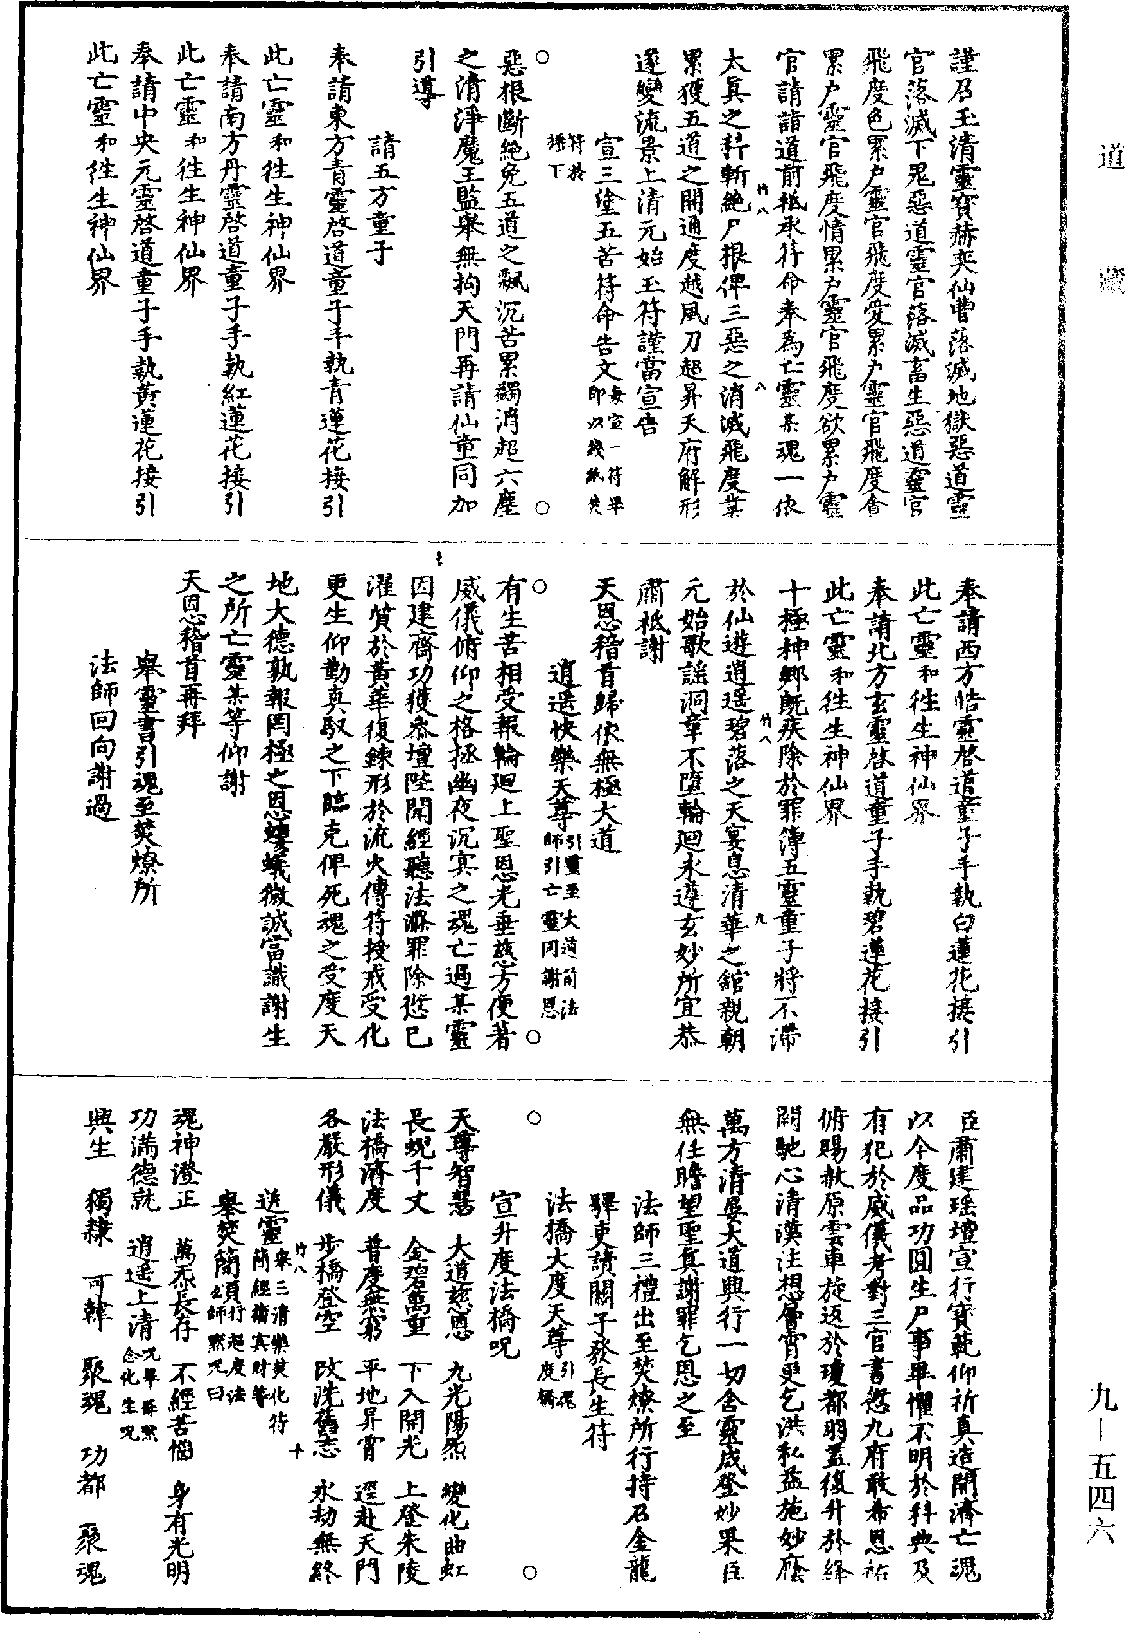 道藏
謹召玉清靈寶赫奕仙曹落滅地獄惡道靈
官落滅下鬼惡道靈官落滅畜生惡道靈官
飛度色累戶靈官飛度愛累戶靈官飛度貪
累戶靈官飛度情累戶靈官飛度欲累戶靈
官請詣道前祗承符命奉為亡靈某魂一依
竹八 八
太真之科斬絕尸根俾三惡之消滅飛度業
累獲五道之開通度越風刀超昇天府解形
遂變流景上清元始玉符謹當宣告
宣三塗五苦符命告文每宣一符畢
印以錢紙焚
符於
壇下
○ ○
惡根斷絕免五道之飄沉苦累蠲消超六塵
之清淨魔王監舉無拘天門再請仙童同加
引導
請五方童子
奉請東方青靈啓道童子手執青蓮花接引
此亡靈和往生神仙界
奉請南方丹靈啓道童子手執紅蓮花接引
此亡靈和往生神仙界
奉請中央元靈啓道童子手執黃蓮花接引
此亡靈和往生神仙界
奉請西方皓靈啓道童子手執白蓮花接引
此亡靈和往生神仙界
奉請北方玄靈啓道童子手執碧蓮花接引
此亡靈和往生神仙界
十極神鄉既疾除於罪簿五靈童子將不滯
竹八 九
於仙遊逍遥碧落之天宴息清華之館親朝
元始歌謠洞章不墮輪廻永遵玄妙所宜恭
肅祗謝
天恩稽首歸依無極大道
逍遥快樂天尊引靈至大道前法
師引亡靈同謝恩
○ ○
有生苦相受報輪廻上聖恩光垂慈方便著
威儀俯仰之格拯幽夜沉冥之魂亡過某靈
因建齋功獲參壇陛聞經聽法滌罪除愆已
濯質於黃華復鍊形於流火傳符授戒受化
更生仰勤真馭之下臨克俾死魂之受度天
地大德孰報罔極之恩螻蟻微誠當識謝生
之所亡靈某等仰謝
天恩稽首再拜
舉靈書引魂至焚燎所
法師回向謝過
臣肅建瑤壇宣行寶範仰祈真造開濟亡魂
以今度品功圓生尸事畢懼不明於科典及
有犯於威儀考對三官書愆九府敢希恩祐
俯賜赦原雲車旋返於瓊都羽蓋復升於絳
闕馳心清漢注想層霄更乞洪私益施妙廕
萬方清晏大道興行一切含靈咸登妙果臣
無任瞻望聖真謝罪乞恩之至
法師三禮出至焚燎所行持召金龍
驛吏請關子發長生符
法橋大度天尊引魂
度橋
○ ○
宣升度法橋呪
天尊智慧 大道慈恩 九光陽炁 變化曲虹
長蜺千丈 金碧萬重 下入開光 上登朱陵
法橋濟度 普度無窮 平地昇霄 逕赴天門
各嚴形儀 步橋登空 改洗舊志 永劫無終
竹八 十
送靈舉三清樂焚化符
簡經籙冥財等
舉焚簡頌行超度法
法師默咒曰
魂神澄正 萬炁長存 不經苦惱 身有光明
功滿德就 逍遥上清咒畢師默
念化生咒
與生 獨隸 可韓 聚魂 功都 聚魂
九—五四六